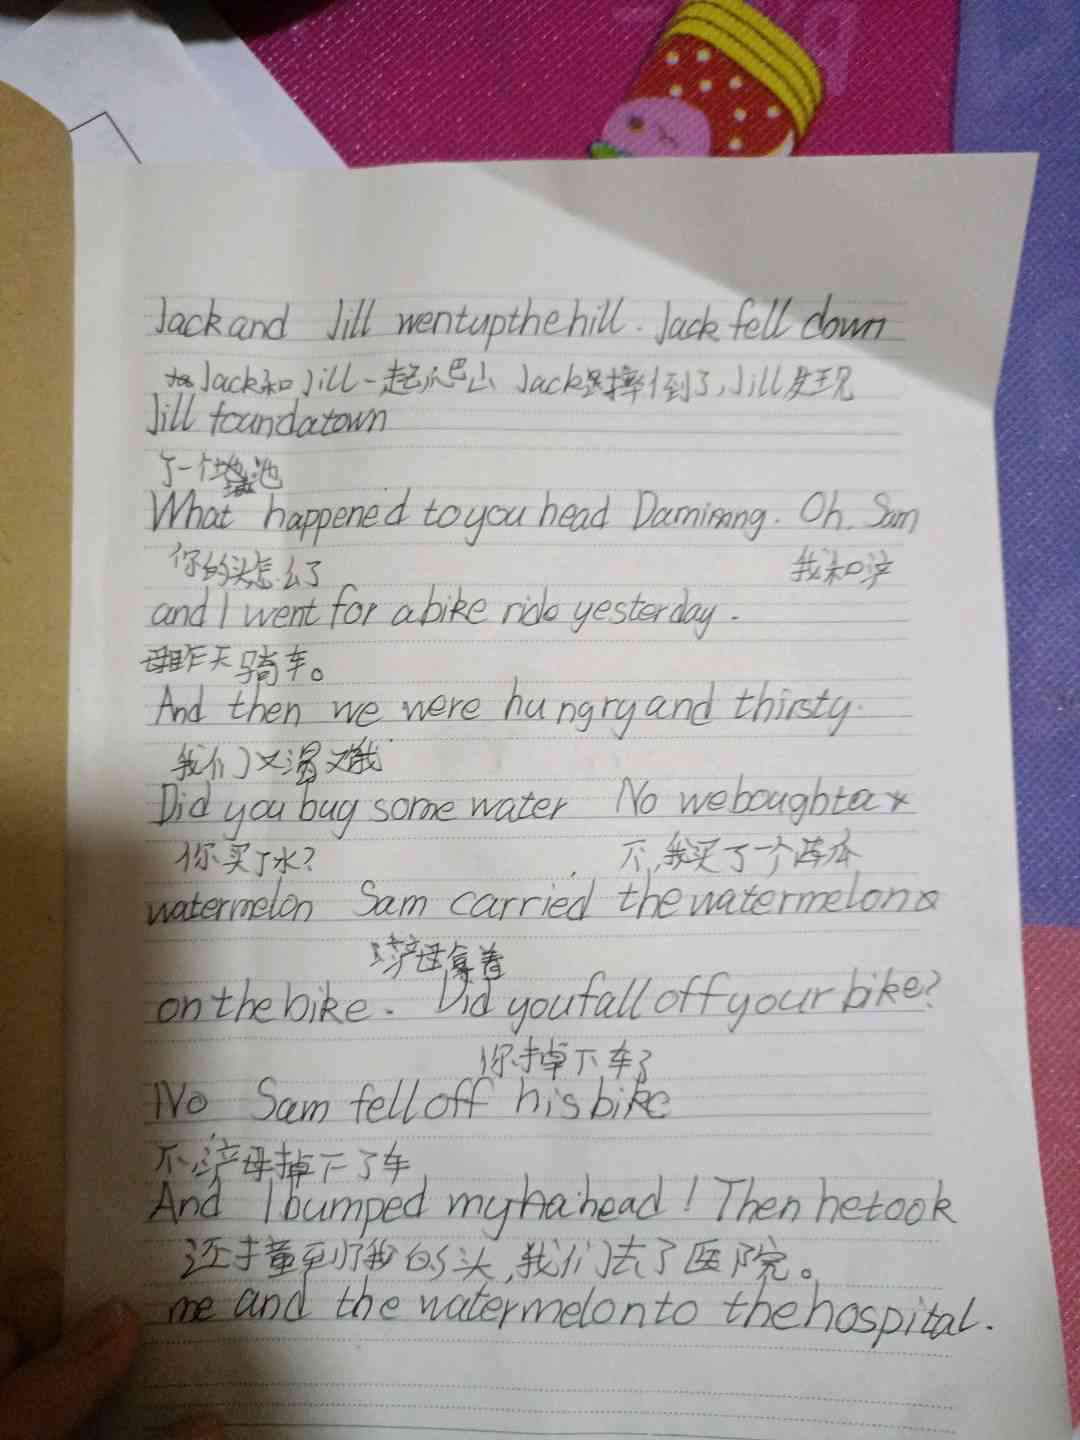 Jack and Jill went up the hill. Jack fell down
Jack和Jill一起爬山 Jack摔倒了,Jill发现
Jill found a town
了一个池
What happened to you head Daming. Oh, Sam
你的头怎么了 我和
and I went for a bike ride yesterday.
昨天骑车。
And then we were hungry and thirsty.
我们又渴又饿
Did you bug some water No we bought a
你买了水? 不,我买了一个
watermelon Sam carried the watermelon
母拿着
on the bike. Did you fall off your bike?
你掉下车了
No Sam fell off his bike
不 母掉下了车
And I bumped my head! Then he took
还撞到了我的头,我们去了医院。
me and the watermelon to the hospital.